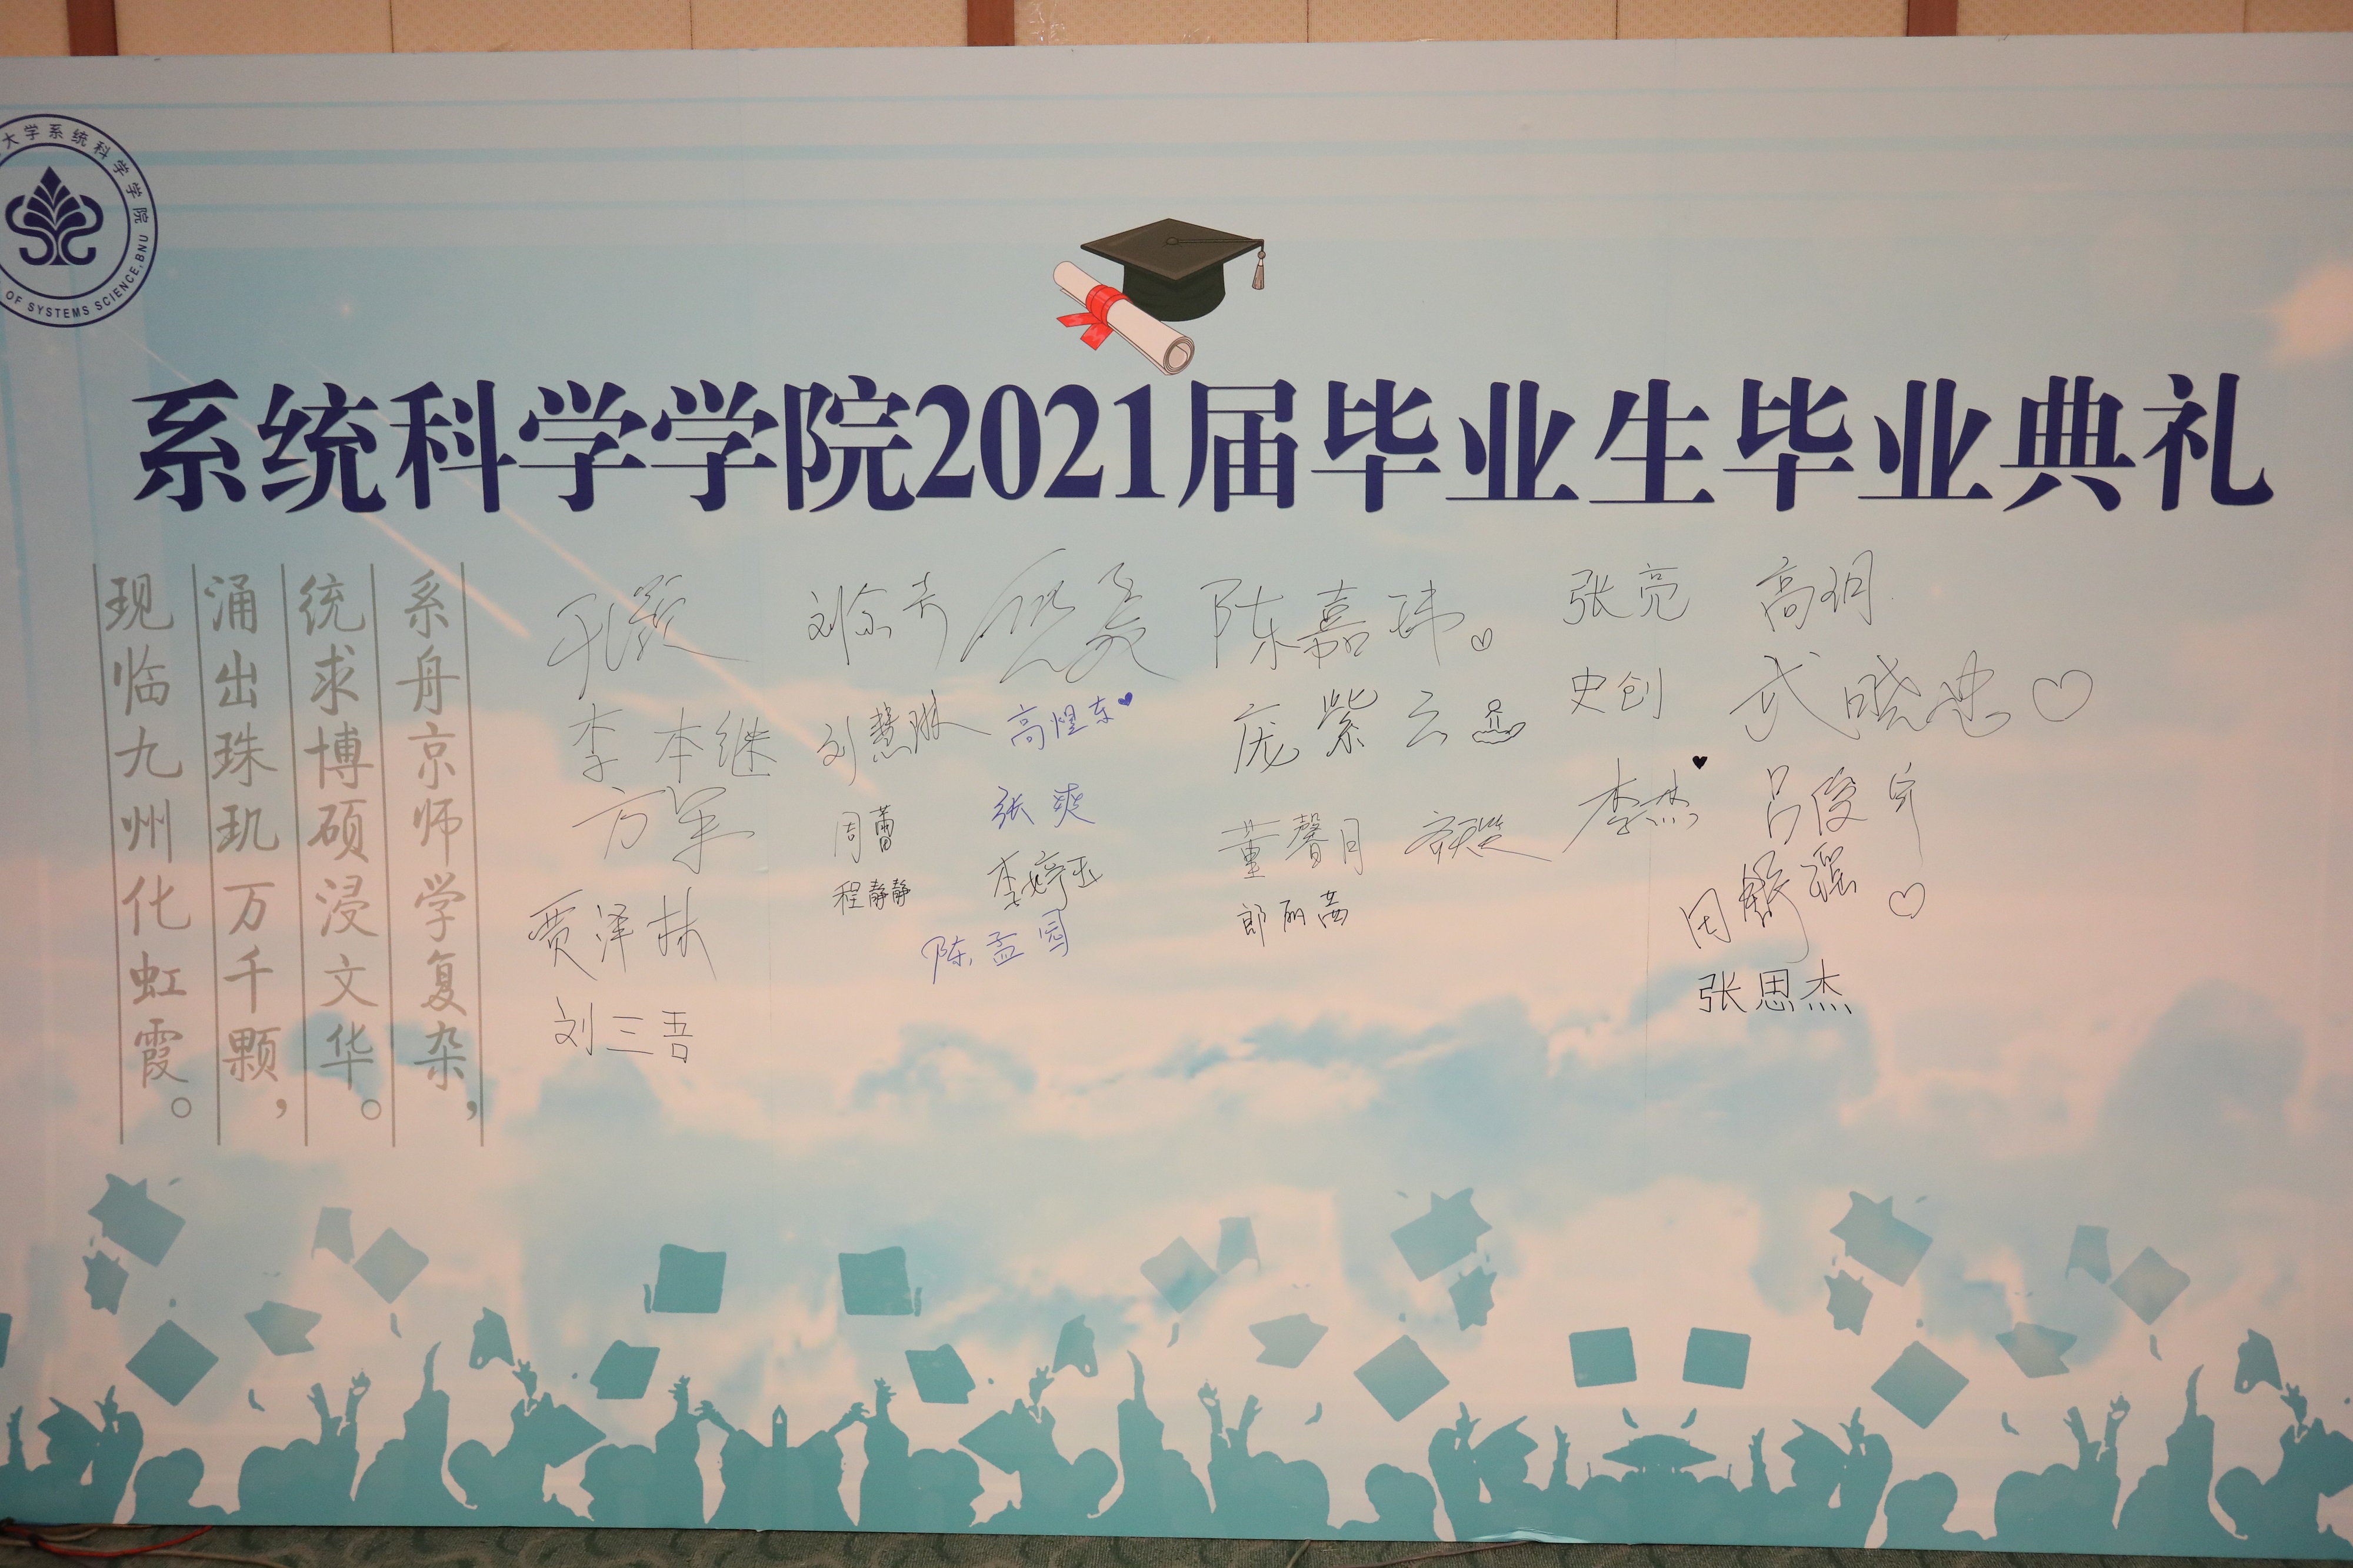 大学系统科学学院
OF SYSTEMS SCIENCE,BNU
系统科学学院2021届毕业生毕业典礼
系舟京师学复杂，
统求博硕浸文华。
涌出珠玑万千颗，
现临九州化虹霞。
李本继
贾泽林
刘三吾
刘慧琳
周蕾
程静静
高惺东
张爽
李婷玉
陈孟园
陈嘉玮
庞紫云
董馨月
郎丽茜
张亮
高玥
史创
武晓忠
李杰
吕俊宇
周舒瑶
张思杰